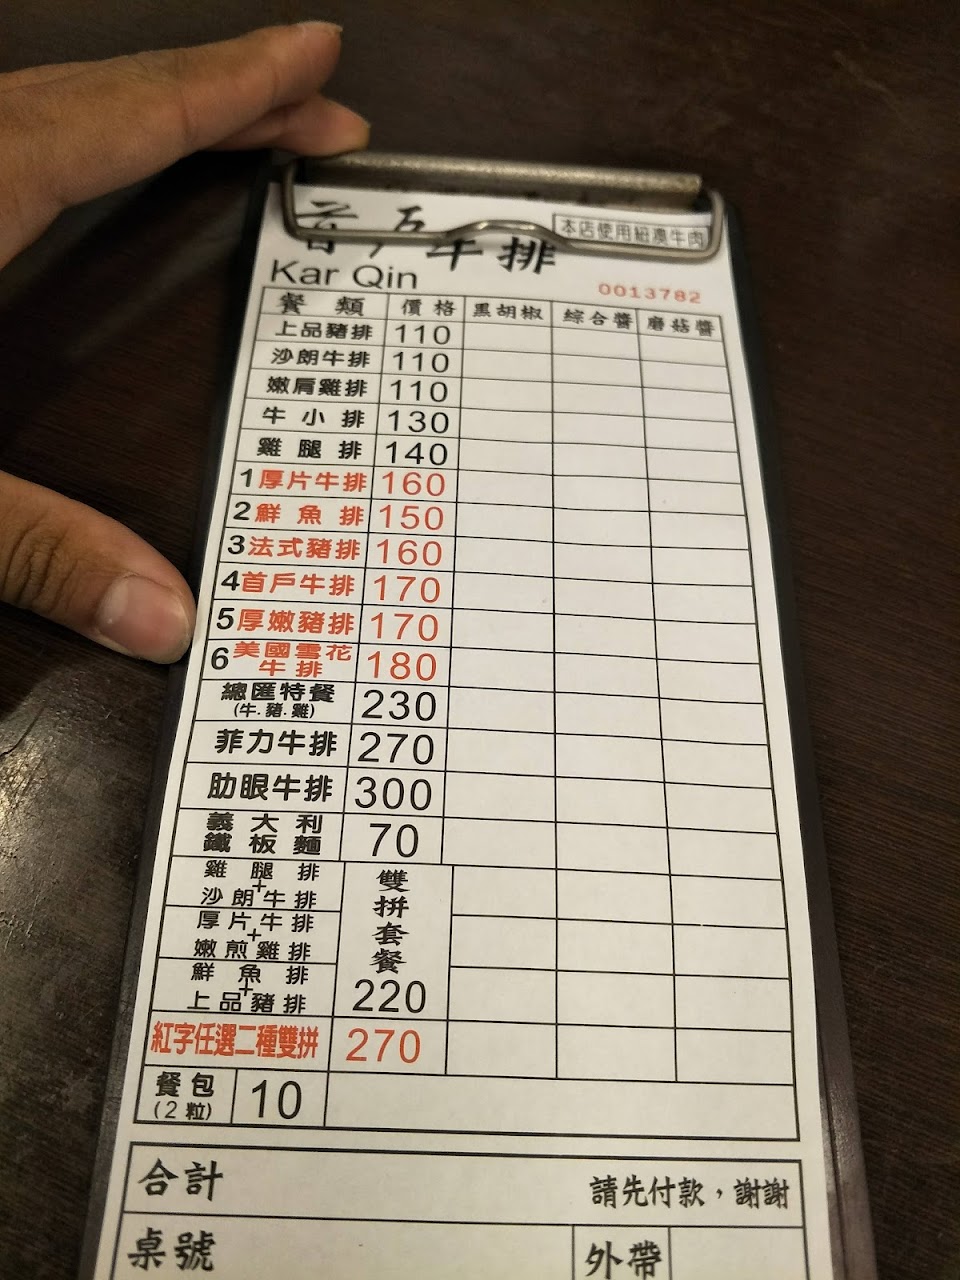 首戶牛排
本店使用紐澳牛肉
Kar Qin
0013782
餐類 價格 黑胡椒 綜合醬 磨菇醬
上品豬排 110
沙朗牛排 110
嫩肩雞排 110
牛小排 130
雞腿排 140
1厚片牛排 160
2鮮魚排 150
3法式豬排 160
4首戶牛排 170
5厚嫩豬排 170
6美國雪花牛排 180
總匯特餐
(牛.豬.雞) 230
菲力牛排 270
肋眼牛排 300
義大利
鐵板麵 70
雞腿排
+
沙朗牛排
厚片牛排
+
嫩煎雞排
鮮魚排
+
上品豬排
雙拼套餐
220
紅字任選二種雙拼 270
餐包
(2粒) 10
合計 請先付款，謝謝
桌號 外帶